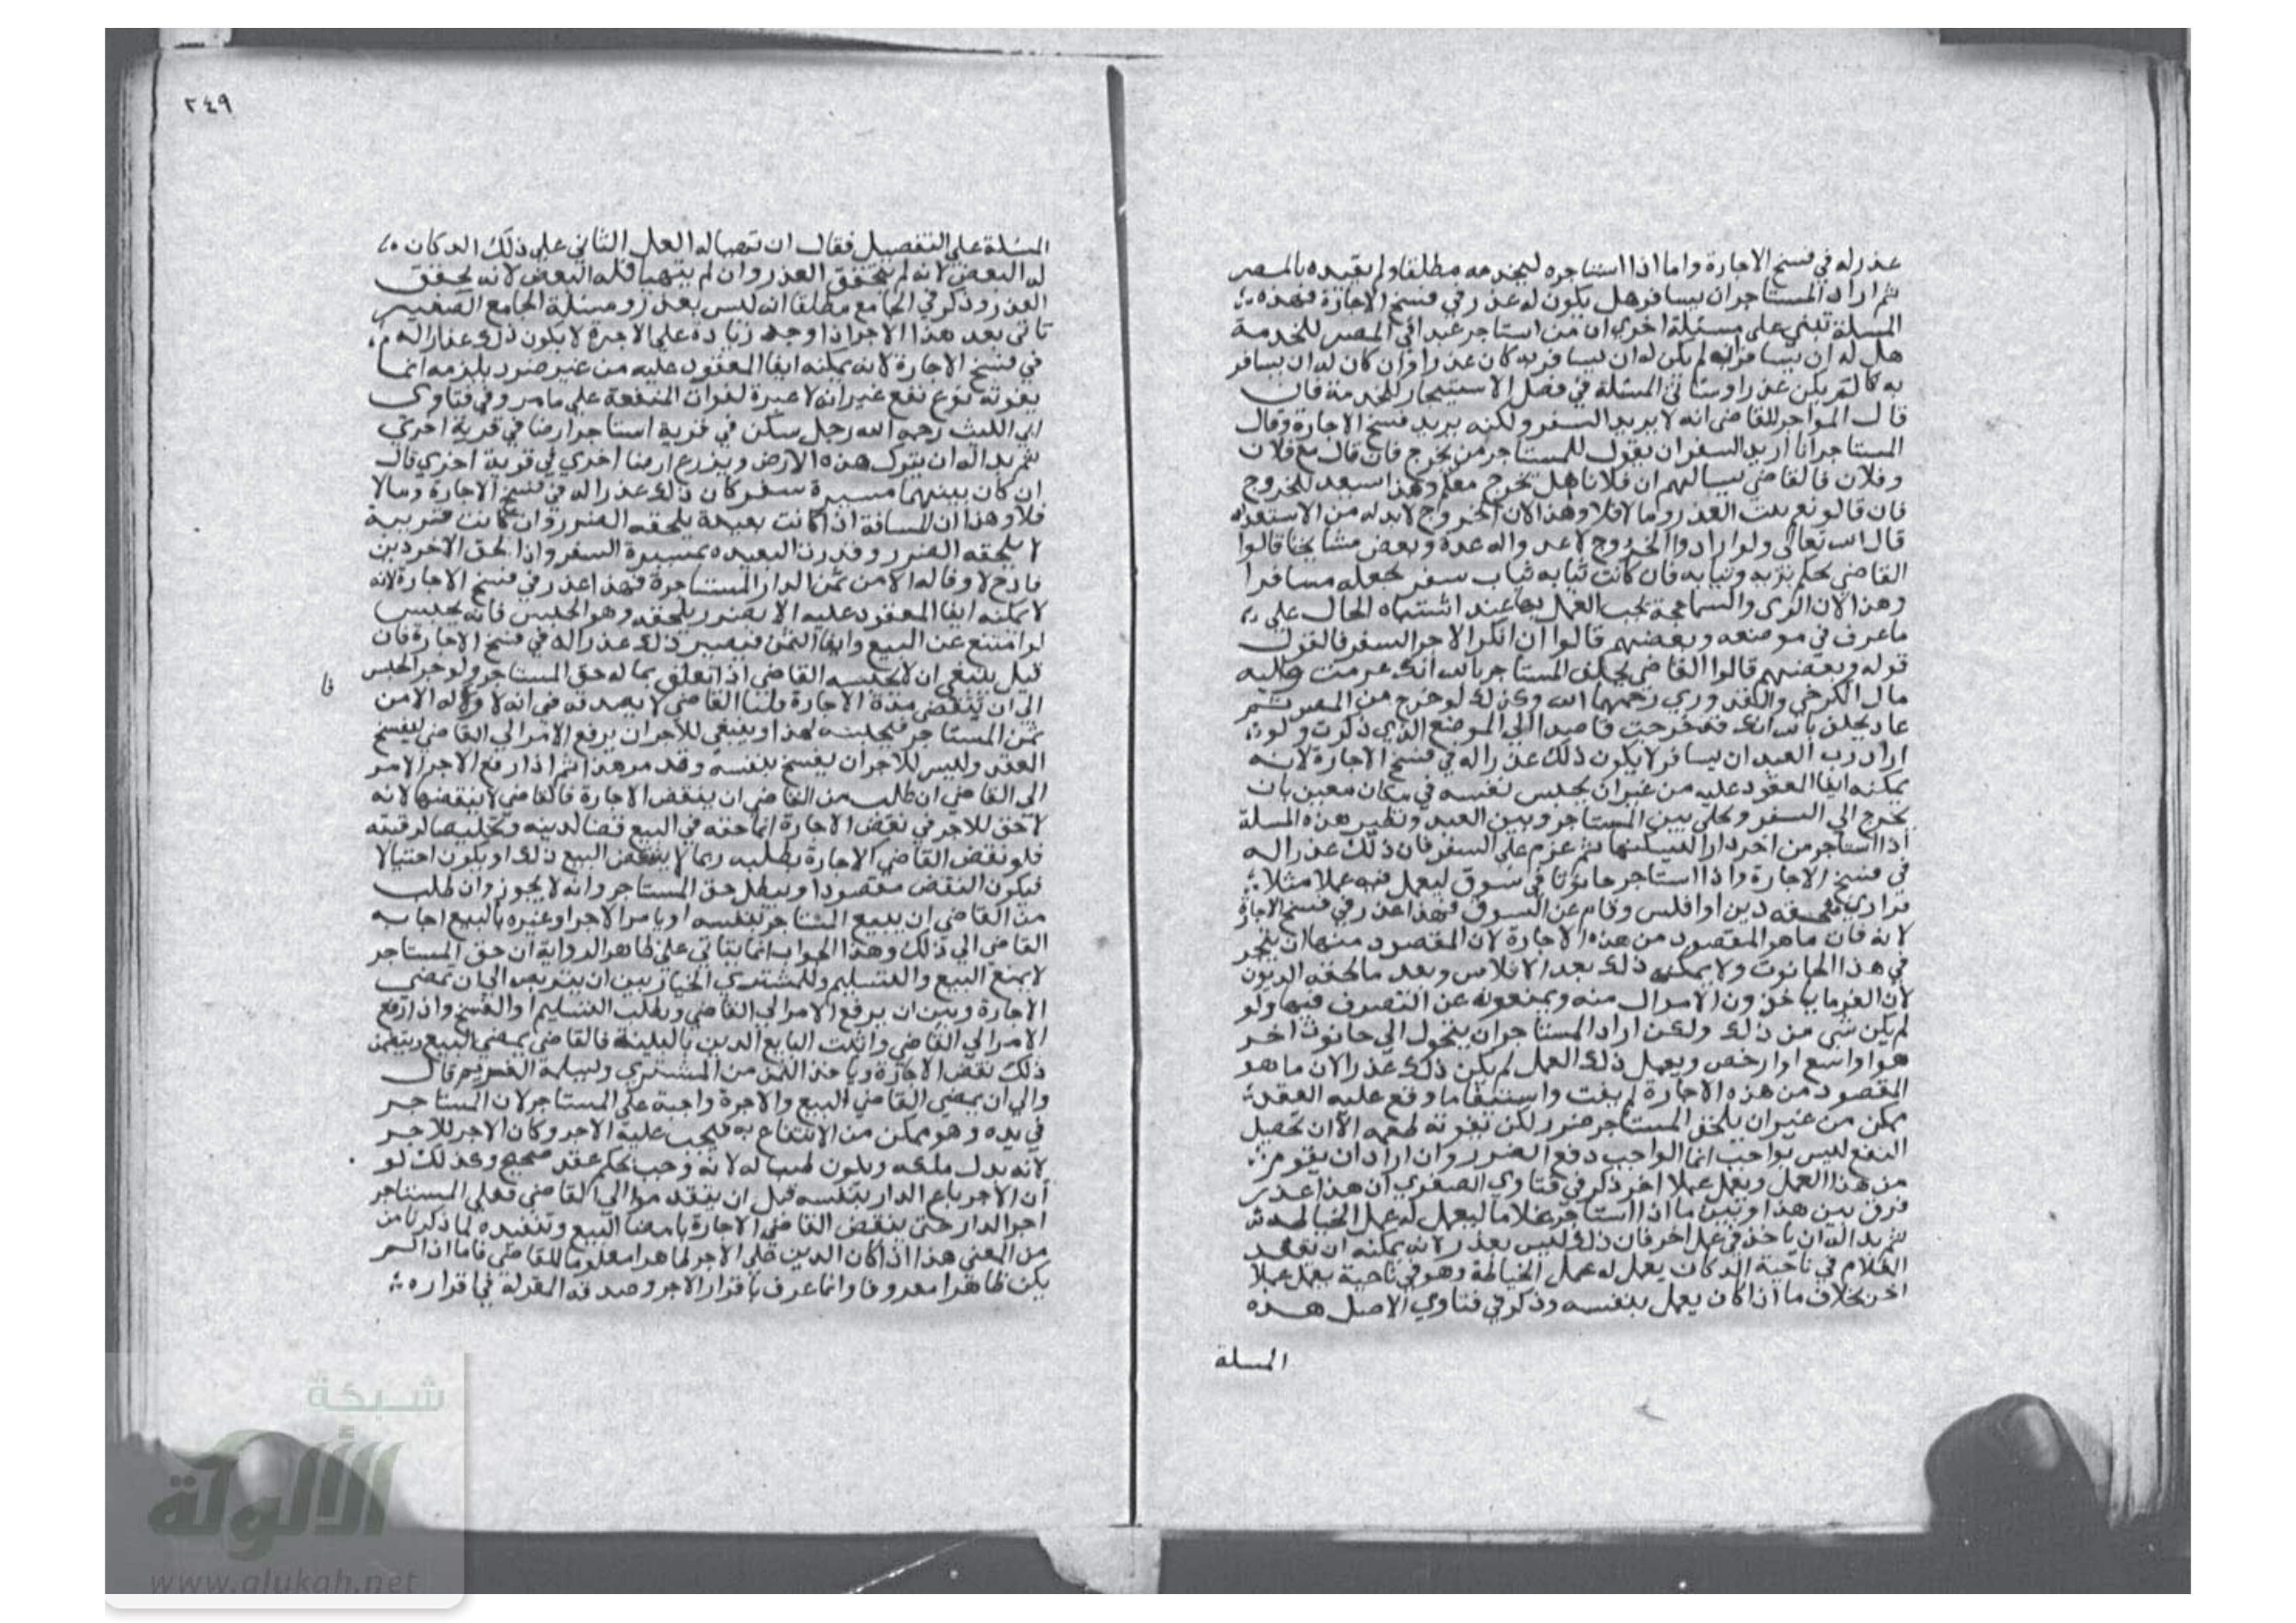 عذر له في فسخ الاجارة واما اذا استاجره ليخدمه مطلقا ولم يقيده بالمصر
ثم اراد المستاجر ان يسافر هل يكون له عذر في فسخ الاجارة فهذه
المسلة تبني على مسئلة اخري ان من استاجر عبدا في المصر للخدمة
هل له ان يسافر به لم يكن له ان يسافر به كان عذرا وان كان له ان يسافر
به كا لم يكن عذرا وستاتي المسئلة في فصل الاستيجار للخدمة فان
قال المواجر للقاضي انه لا يريد السفر ولكنه يريد فسخ الاجارة وقال
المستاجر انا اريد السفر ان يقول للمستاجر من يخرج فان قال مع فلان
وفلان فالقاضي يسالهم ان فلانا هل يخرج معكم وهذا سبعد للخروج
فان قالو نعم يثبت العذر وما لا فلا وهذا لان الخروج لابد له من الاستعداد
قال الله تعالى ولو ارادوا الخروج لاعدوا له عدة وبعض مشايخنا قالوا
القاضي يحكم بزيه وثيابه فان كانت ثيابه ثياب سفر يجعله مسافرا
وهذا لان الزي والسما حجة يجب العمل بها عند اشتباه الحال علي
ما عرف في موضعه وبعضهم قالوا ان انكر الاجر السفر فالقول
قوله وبعضهم قالوا القاضي يحلف المستاجر بالله انك عزمت واليه
مال الكرخي والقدوري رحمهما الله وكذلك لو خرج من المصر ثم
عاد يحلف بالله انك قد خرجت قاصدا الي الموضع الذي ذكرت ولو
اراد رب العبد ان يسافر لا يكون ذلك عذرا له في فسخ الاجارة لانه
يمكنه ايفا المعقود عليه من غير ان يحبس نفسه في مكان معين بان
يخرج الي السفر ويخلي بين المستاجر وبين العبد ونظير هذه المسلة
اذا استاجر من اخر دارا ليسكنها ثم عزم علي السفر فان ذلك عذرا له
في فسخ الاجارة واذا استاجر حانوتا في سوق ليعمل فيه عملا مثلا
دين او افلس وقام عن السوق فهذا عذر في فسخ الاجارة
لانه فات ما هو المقصود من هذه الاجارة لان المقصود منها ان يتجر
في هذا الحانوت ولا يمكنه ذلك بعد الافلاس وبعد ما لحقه الديون
لان الغرما ياخذون الاموال منه ويمنعونه عن التصرف فيها ولو
لم يكن شي من ذلك ولكن اراد المستاجر ان يتحول الي حانوت اخر
هو اوسع او ارخص ويعمل ذلك العمل لم يكن ذلك عذرا لان ما هو
المقصود من هذه الاجارة لم يفت واستيفا ما وقع عليه العقد
ممكن من غير ان يلحق المستاجر ضرر لكن يفوته الا ان تحصيل
النفع ليس بواجب انما الواجب دفع الضرر وان اراد ان يقوم
من هذا العمل ويعمل عملا اخر ذكر في فتاوي الصغري ان هذا عذر
فرق بين هذا وبين ما اذا استاجر غلاما ليعمل له عمل الخياطة
ثم بدا له ان ياخذ في عمل اخر فان ذلك ليس بعذر لانه يمكنه ان يقعد
الغلام في ناحية الدكان يعمل له عمل الخياطة وهو في ناحية يعمل عملا
اخر بخلاف ما اذا كان يعمل بنفسه وذكر في فتاوي الاصل هذه
المسلة
٢٤٩
المسئلة علي التفصيل فقال ان تهيا له العمل الثاني علي ذلك الدكان
له النقض لانه لم يتحقق العذر وان لم يتهيا فله النقض لانه تحقق
العذر وذكر في الجامع مطلقا انه ليس بعذر ومسئلة الجامع الصغير
تاتي بعد هذا الاجر اذا وجد زيادة علي الاجرة لا يكون ذلك عذرا له
في فسخ الاجارة لانه يمكنه ايفا المعقود عليه من غير ضرر يلزمه انما
يفوته نوع نفع غير انه لا عبرة لفوات المنفعة علي ما مر وفي فتاوي
ابي الليث رحمه الله رجل سكن في قرية استاجر ارضا في قرية اخري
ثم بدا له ان يترك هذه الارض ويزرع ارضا اخري في قرية اخري قال
ان كان بينهما مسيرة سفر كان ذلك عذرا له في فسخ الاجارة ومالا
فلا وهذا ان المسافة اذا كانت بعيدة يلحقه الضرر وان كانت قريبة
لا يلحقه الضرر وقدرت البعيدة بمسيرة السفر واذا لحق الاخر دين
فادح لا وفا له الا من ثمن الدار المستاجرة فهذا عذر في فسخ الاجارة لانه
لا يمكنه ايفا المعقود عليه الا بضرر يلحقه وهو الحبس فانه يحبس
لو امتنع عن البيع وايفا الثمن فيصير ذلك عذرا له في فسخ الاجارة فان
قيل ينبغي ان لا يحبسه القاضي اذا تعلق بماله حق المستاجر ولو جر الحبس
فا
الي ان تنقضي مدة الاجارة قلنا القاضي لا يصدقه في انه لا وفا له الا من
ثمن المستاجر فيحبسه لهذا وينبغي للاجر ان يرفع الامر الي القاضي ليفسخ
العقد وليس للاجر ان يفسخ بنفسه وقد مر هذا ثم اذا رفع الاجر الامر
الي القاضي ان طلب من القاضي ان ينقض الاجارة فالقاضي لا ينقضها لانه
لا حق للاجر في نقض الاجارة انما حقه في البيع قضا لدينه وتخليصا لرقبته
فلو نقض القاضي الاجارة بطلبه ربما لا ينقض البيع ذلك او يكون احتيالا
فيكون النقض مقصودا ويبطل حق المستاجر وانه لا يجوز وان طلب
من القاضي ان يبيع المستاجر بنفسه او يامر الاجر او غيره بالبيع اجابه
القاضي الي ذلك وهذا الجواب انما يتاتي علي ظاهر الرواية ان حق المستاجر
لا يمنع البيع والتسليم وللمشتري الخيار بين ان يتربص الي ان تمضي
الاجارة وبين ان يرفع الامر الي القاضي ويطلب التسليم او الفسخ واذا رفع
الامر الي القاضي واثبت البايع الدين بالبينة فالقاضي يمضي البيع ويتضمن
ذلك نقض الاجارة وياخذ الثمن من المشتري ويسلمه الغريم قال
والي ان يمضي القاضي البيع والاجرة واجبة علي المستاجر لان المستاجر
في يده وهو ممكن من الانتفاع به فيجب عليه الاجر وكان الاجر للاجر
لانه بدل ملكه ويكون طيبا له لانه وجب بحكم عقد صحيح وكذلك لو
ان الاجر باع الدار بنفسه قبل ان يتقدموا الي القاضي فعلي المستاجر
اجر الدار حتي ينقض القاضي الاجارة بامضا البيع وتنفيذه لما ذكرنا من
من المعني هذا اذا كان الدين علي الاجر ظاهرا معلوما للقاضي فاما اذا لم
يكن ظاهرا معروفا وانما عرف باقرار الاجر وصدقه المقر له في اقراره
شبكة
الألوكة
www.alukah.net